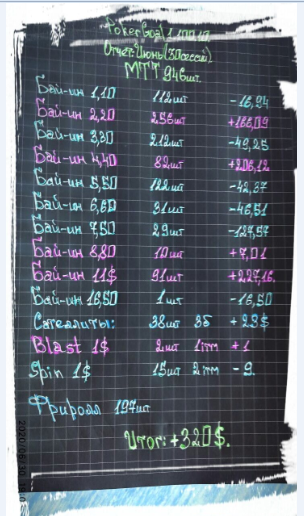 Отчет Июнь (30сессий)
МТТ 946шт.
Бай-ин 1,10 112шт -16,94
Бай-ин 2,20 256шт +166,09
Бай-ин 3,30 212шт -49,25
Бай-ин 4,40 82шт +206,12
Бай-ин 5,50 122шт -42,37
Бай-ин 6,60 31шт -46,51
Бай-ин 7,50 29шт -127,57
Бай-ин 8,80 10шт +7,01
Бай-ин 11$ 91шт +227,16.
Бай-ин 16,50 1шт -16,50
Сателлиты: 38шт 3б + 23$
Blast 1$ 2шт 1itm + 1
Spin 1$ 15шт 2itm - 9.
Фриролл 197шт
Итог: +320$.